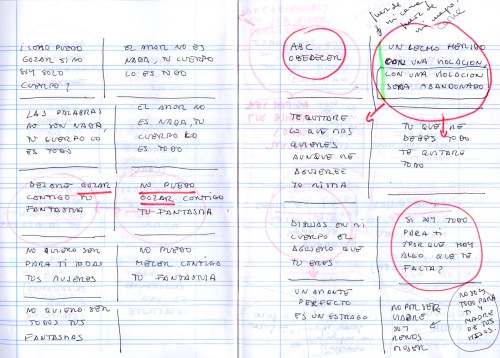 ¿COMO PUEDO
GOZAR SI NO
SOY SOLO
CUERPO?
EL AMOR NO ES
NADA, TU CUERPO
LO ES TODO
LAS PALABRAS
NO SON NADA,
TU CUERPO LO
ES TODO
EL AMOR NO
ES NADA, TU
CUERPO LO
ES TODO
DEJAME GOZAR
CONTIGO TU
FANTASMA
NO PUEDO
GOZAR CONTIGO
TU FANTASMA
NO QUIERO SER
PARA TI TODAS
TUS MUJERES
NO PUEDO
HACER CONTIGO
TU FANTASMA
NO QUIERO SER
TODOS TUS
FANTASMAS
ABC
OBEDECER
UN LECHO HERIDO
CON UNA VIOLACION,
CON UNA VIOLACION
SERA ABANDONADO
TE QUITARE
LO QUE MAS
QUIERES
AUNQUE ME
AGUJEREE
YO MISMA
TU QUE ME
DEBES TODO
TE QUITARE
TODO
DIBUJAS EN MI
CUERPO EL
AGUJERO QUE
TU ERES
SI SOY TODO
PARA TI
¿POR QUE HAY
ALGO QUE TE
FALTA?
UN AMANTE
PERFECTO
ES UN ESTRAGO
NO POR SER
MADRE
SOY
MENOS
MUJER
NO SOY
TODO PARA
TI Y
MADRE
DE TUS
HIJOS